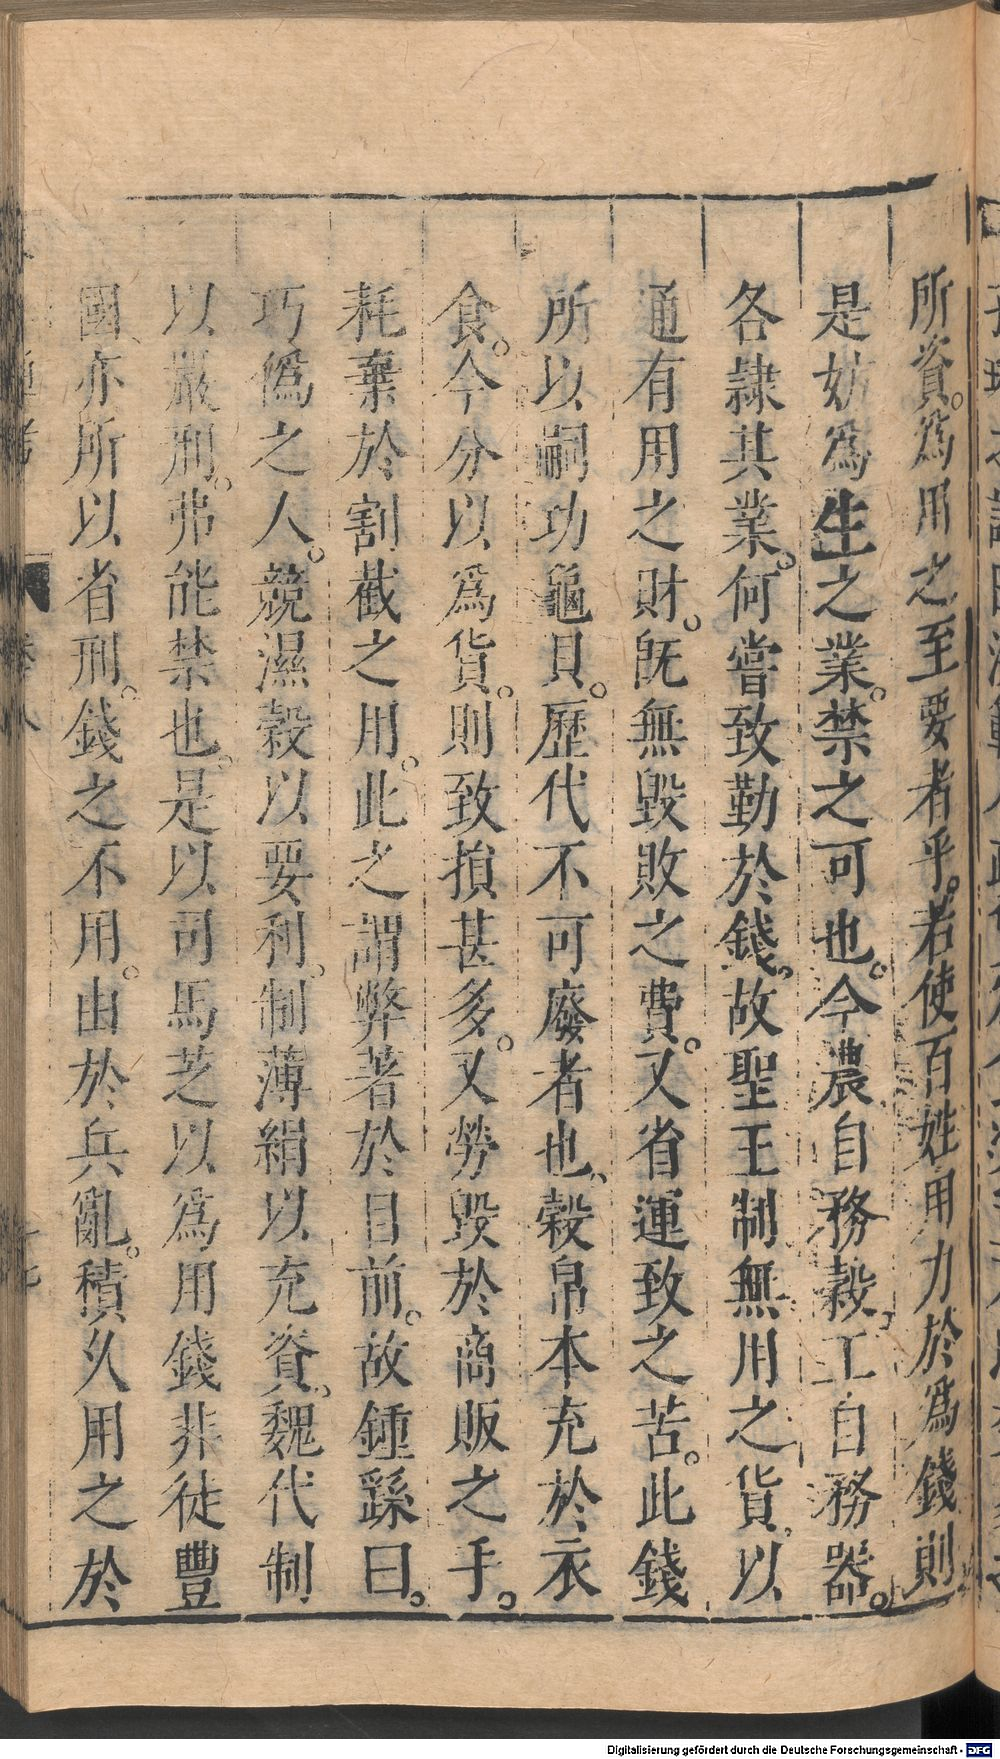 所資。爲用之至要者乎。若使百姓用力於爲錢則
是妨爲生之業。禁之可也。今農自務穀。工自務器。
各隸其業。何嘗致勤於錢。故聖王制無用之貨。以
通有用之財。旣無毀敗之費。又省運致之苦。此錢
所以嗣功龜貝。歷代不可廢者也、穀帛本充於衣
食。今分以爲貨。則致損甚多。又勞毀於商販之手。
耗棄於割截之用。此之謂弊著於目前。故鍾繇曰。
巧僞之人。競濕穀以要利。制薄絹以充資。魏代制
以嚴刑。弗能禁也。是以司馬芝以爲用錢非徒豐
國、亦所以省刑。錢之不用。由於兵亂。積久用之於
Digitalisierung gefördert durch die Deutsche Forschungsgemeinschaft - DFG